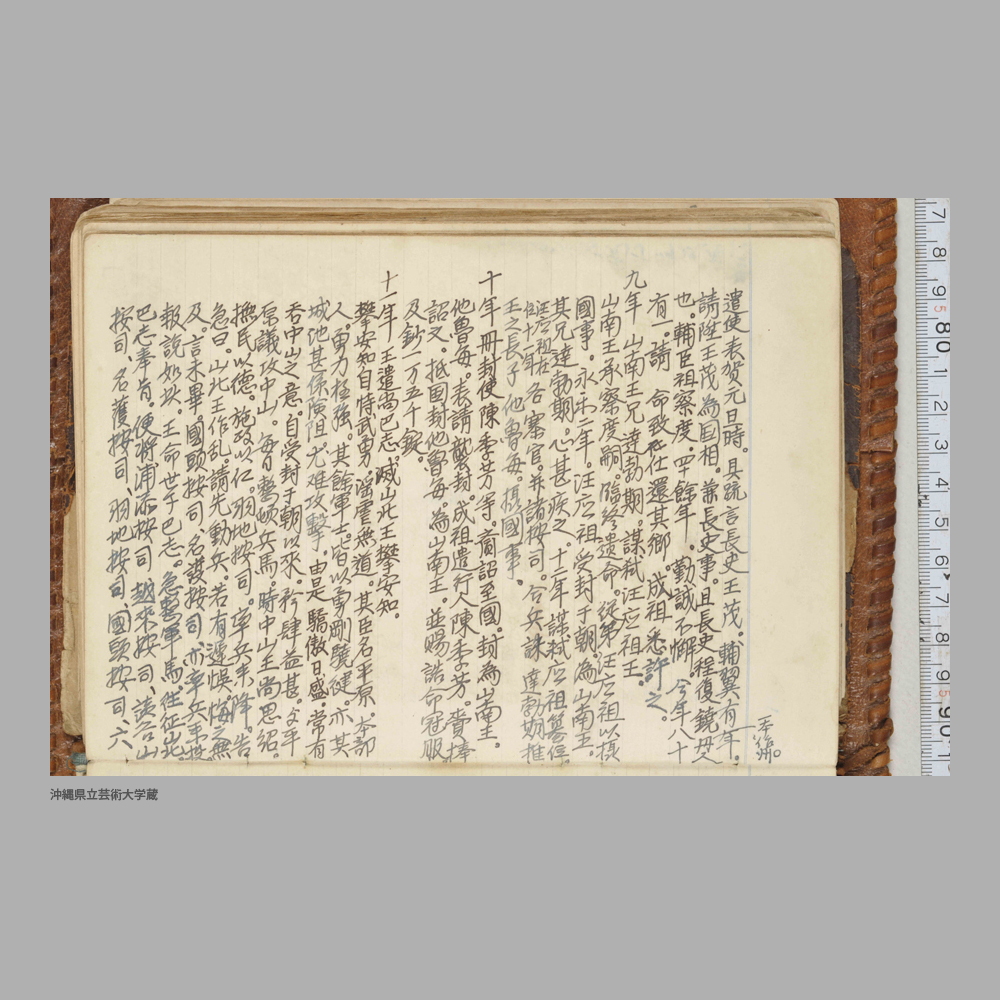 遣使表賀元旦時。具疏言長史王茂。輔翼有年。
請陞王茂為国相。兼長史事。且長史程復饒州人
也。輔臣祖察度。四十餘年。勤誠不懈。今年八十
有一。請命致仕還其郷。成祖悉許之。
九年 山南王兄達勃期。謀弑汪応祖王。
山南王承察度嗣。臨終遺命。從弟汪応祖以摂
國事。永楽二年。汪応祖受封于朝。為山南王。
其兄達勃期。心甚疾之。十一年謀弑応祖簒位。
汪応祖在位十一年 各寨官。并諸按司。合兵誅達勃期推
王之長子他魯毎。摂國事。
十年 冊封使陳季芳等。齎詔至國。封為山南王。
他魯毎。表請襲封。成祖遣行人陳季芳。賷捧
詔文。抵国封他魯毎。為山南王。並賜誥命冠服
及鈔一万五千錠。
十一年 王遣尚巴志。滅山北王攀安知。
攀安知自恃武勇。淫虐無道。其臣名平原。本部
人。勇力極強。其餘軍士。皆以勇剛驍健。亦其
城池甚係険阻。尤難攻撃。由是驕傲日盛。常有
呑中山之意。自受封于朝以來。矜肆益甚。与平
原議攻中山。毎日整頓兵馬。時中山王尚思紹。
撫民以德。施政以仁。羽地按司。率兵来降。告
急曰。山北王作乱。請先動兵。若有遅悞。悔之無
及。言未畢。國頭按司。名護按司。亦率兵来投。
報説如斯。王命世子巴志。急整軍馬往征山北。
巴志奉旨。便将浦添按司、越来按司、読谷山
按司、名護按司、羽地按司、國頭按司、六
沖縄県立芸術大学蔵